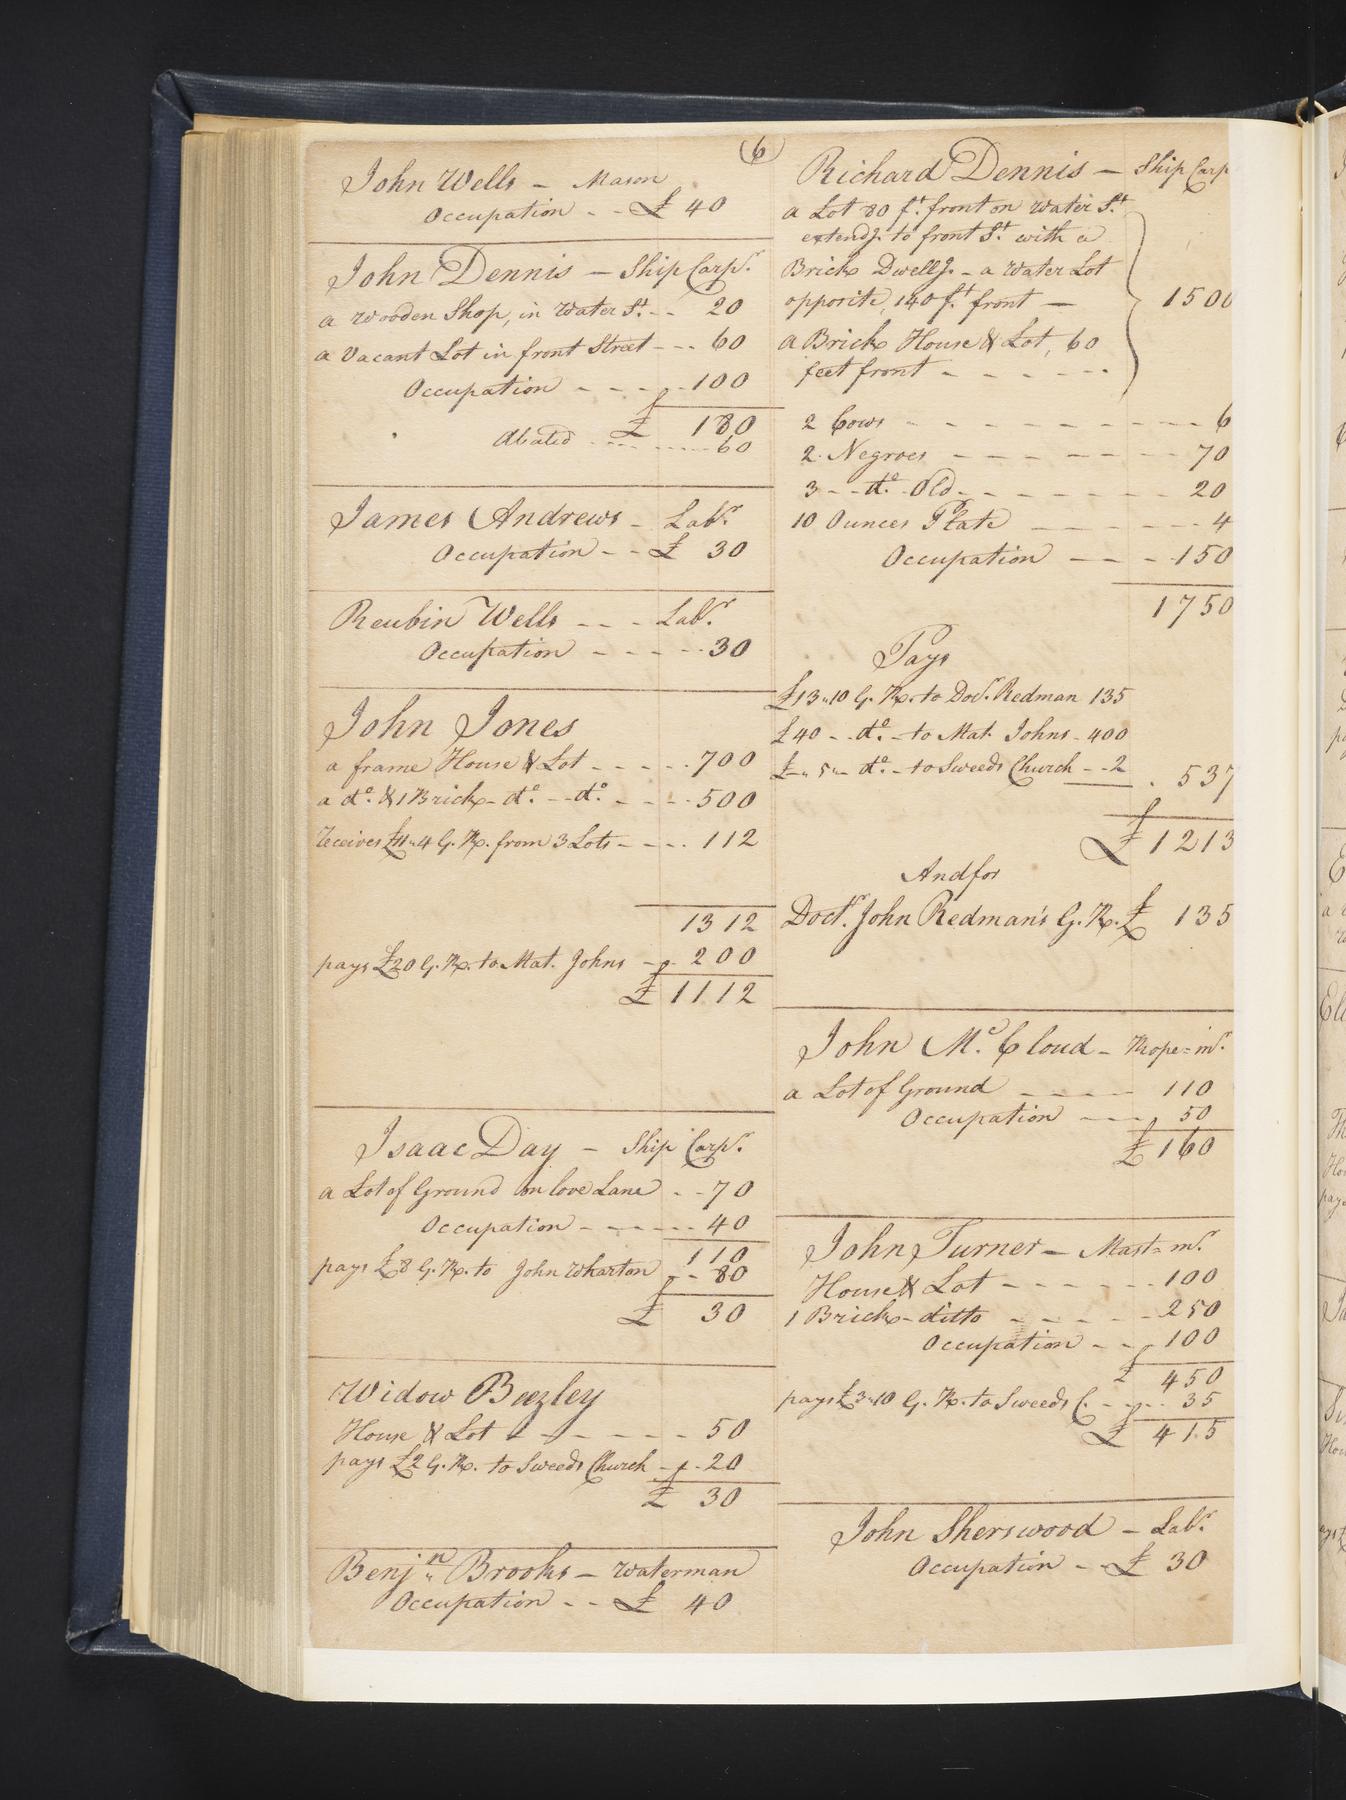 (6)
John Wells – Mason
Occupation - - £ 40
John Dennis – Ship Carpr.
a Wooden Shop, in Water St. - - 20
a Vacant Lot in front Street - - - 60
Occupation - - - - 100
£ 180
Abated - - - - 60
James Andrews – Labr.
Occupation - - £ 30
Reubin Wells - - - Labr.
Occupation - - - - - 30
John Jones
a frame House & Lot - - - - - 700
a do. & 1 Brick - do. - - do. - - - - 500
receives £11„4 G. R. from 3 Lots - - - - 112
1312
pays £20 G. R. to Mat. Johns - - 200
£ 1112
Isaac Day – Ship Carpr.
a Lot of Ground in love Lane - - 70
Occupation - - - - - - 40
110
pays £8 G. R. to John Wharton - - 80
£ 30
Widow Beezley
House & Lot - - - - - - 50
pays £2 G. R. to Sweeds Church - - 20
£ 30
Benjn. Brooks – Waterman
Occupation - - £ 40
Richard Dennis – Ship Carp
a Lot 80 ft. front on Water St.
extendg. to front St. with a
Brick Dwellg. – a Water Lot
opposite, 140 ft. front – 1500
a Brick House & Lot, 60
feet front - - - - - -
2 Cows - - - - - - - - - - 6
2 Negroes - - - - - - - 70
3 - - do. Old - - - - - - - 20
10 Ounces Plate - - - - - - 4
Occupation - - - 150
1750
Pays
£13„10 G. R. to Docr. Redman 135
£40 - - do. - to Mat. Johns - 400
£-„5„- do. - to Sweeds Church - - 2 . 537
£ 1213
And for
Doctr. John Redman's G. R. £ 135
John Mc. Cloud – Rope=mr.
a Lot of Ground - - - - 110
Occupation - - - 50
£ 160
John Turner – Mast=mr.
House & Lot - - - - - - 100
1 Brick - ditto - - - - - 250
Occupation - - 100
£ 450
pays £3„10 G. R. to Sweeds C. - - - - 35
£ 415
John Sherswood – Labr.
Occupation - - £ 30